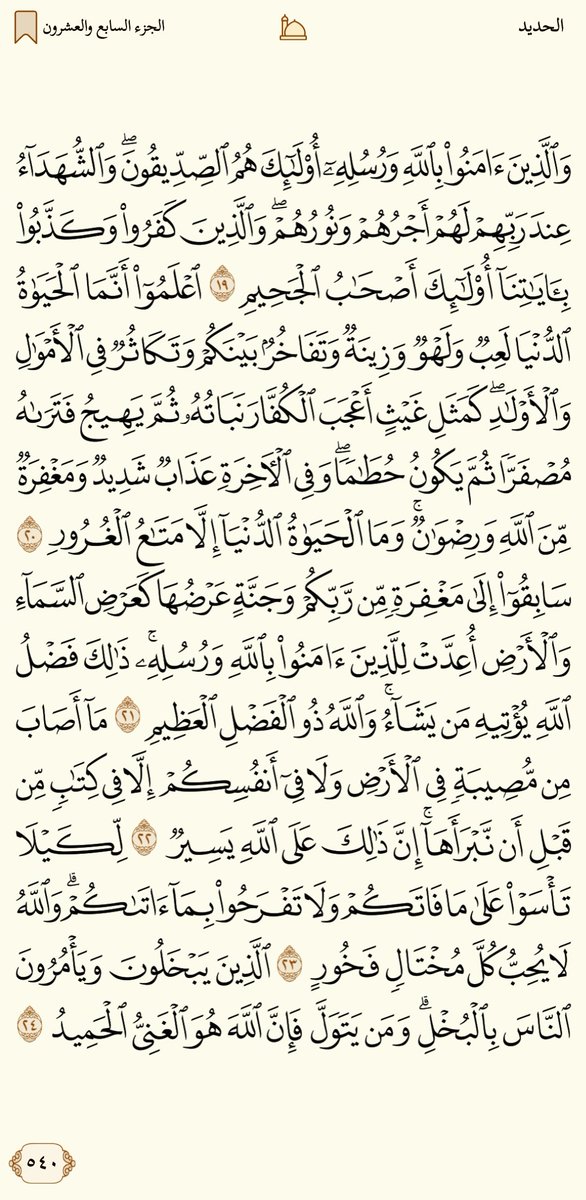 الحديد
الجزء السابع والعشرون
وَٱلَّذِينَ ءَامَنُوا۟ بِٱللَّهِ وَرُسُلِهِۦٓ أُو۟لَـٰٓئِكَ هُمُ ٱلصِّدِّيقُونَ ۖ وَٱلشُّهَدَآءُ
عِندَ رَبِّهِمْ لَهُمْ أَجْرُهُمْ وَنُورُهُمْ ۖ وَٱلَّذِينَ كَفَرُوا۟ وَكَذَّبُوا۟
بِـَٔايَـٰتِنَآ أُو۟لَـٰٓئِكَ أَصْحَـٰبُ ٱلْجَحِيمِ ١٩ ٱعْلَمُوٓا۟ أَنَّمَا ٱلْحَيَوٰةُ
ٱلدُّنْيَا لَعِبٌ وَلَهْوٌ وَزِينَةٌ وَتَفَاخُرٌۢ بَيْنَكُمْ وَتَكَاثُرٌ فِى ٱلْأَمْوَٰلِ
وَٱلْأَوْلَـٰدِ ۖ كَمَثَلِ غَيْثٍ أَعْجَبَ ٱلْكُفَّارَ نَبَاتُهُۥ ثُمَّ يَهِيجُ فَتَرَىٰهُ
مُصْفَرًّا ثُمَّ يَكُونُ حُطَـٰمًا ۖ وَفِى ٱلْـَٔاخِرَةِ عَذَابٌ شَدِيدٌ وَمَغْفِرَةٌ
مِّنَ ٱللَّهِ وَرِضْوَٰنٌ ۚ وَمَا ٱلْحَيَوٰةُ ٱلدُّنْيَآ إِلَّا مَتَـٰعُ ٱلْغُرُورِ ٢٠
سَابِقُوٓا۟ إِلَىٰ مَغْفِرَةٍ مِّن رَّبِّكُمْ وَجَنَّةٍ عَرْضُهَا كَعَرْضِ ٱلسَّمَآءِ
وَٱلْأَرْضِ أُعِدَّتْ لِلَّذِينَ ءَامَنُوا۟ بِٱللَّهِ وَرُسُلِهِۦ ۚ ذَٰلِكَ فَضْلُ
ٱللَّهِ يُؤْتِيهِ مَن يَشَآءُ ۚ وَٱللَّهُ ذُو ٱلْفَضْلِ ٱلْعَظِيمِ ٢١ مَآ أَصَابَ
مِن مُّصِيبَةٍ فِى ٱلْأَرْضِ وَلَا فِىٓ أَنفُسِكُمْ إِلَّا فِى كِتَـٰبٍ مِّن
قَبْلِ أَن نَّبْرَأَهَآ ۚ إِنَّ ذَٰلِكَ عَلَى ٱللَّهِ يَسِيرٌ ٢٢ لِّكَيْلَا
تَأْسَوْا۟ عَلَىٰ مَا فَاتَكُمْ وَلَا تَفْرَحُوا۟ بِمَآ ءَاتَىٰكُمْ ۗ وَٱللَّهُ
لَا يُحِبُّ كُلَّ مُخْتَالٍ فَخُورٍ ٢٣ ٱلَّذِينَ يَبْخَلُونَ وَيَأْمُرُونَ
ٱلنَّاسَ بِٱلْبُخْلِ ۗ وَمَن يَتَوَلَّ فَإِنَّ ٱللَّهَ هُوَ ٱلْغَنِىُّ ٱلْحَمِيدُ ٢٤
٥٤٠